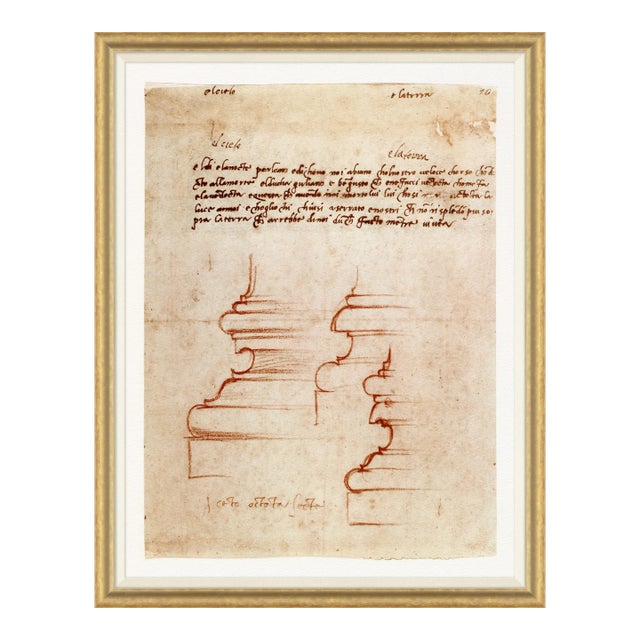 el celo e la terra 10
el celo e la terra
el di e la nocte parlano e dichono noi abiano chol nostro veloce chorso chodō
cto alla morte el ducha giuliano e bē giusto che e ne facci vēdecta chome fa
e la vendecta e questa che avendo noi morto lui lui chosi morto a tolta la
luce a noi e chogli ochi chiusi a serrato e nostri che nō risplēdō piu so
pra la terra che arrebbe di noi dunche facto mētre vivea
cēto octāta